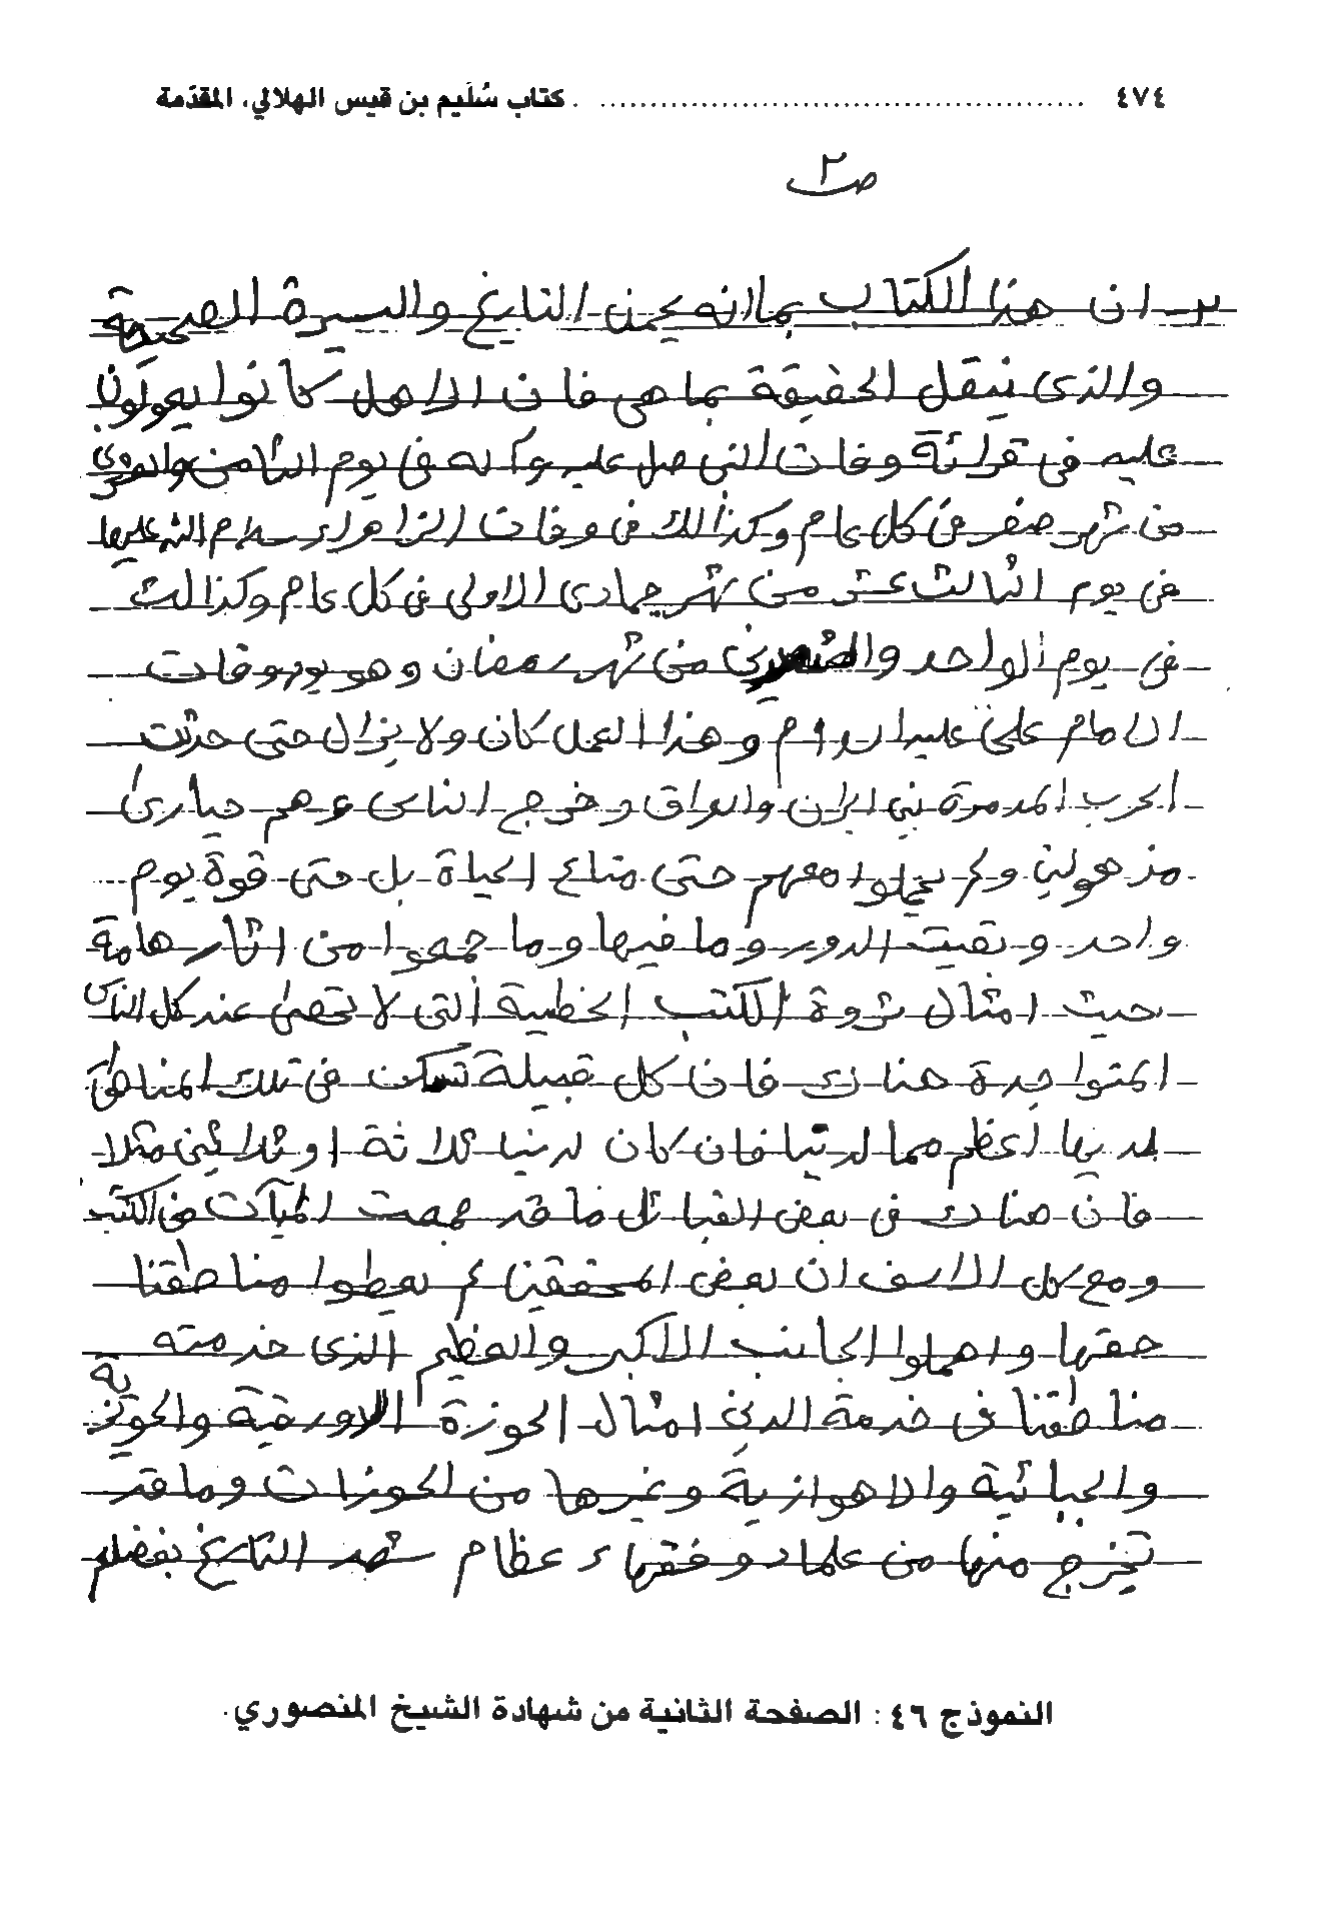 ٤٧٤ ................................................ كتاب سُلَيم بن قيس الهلالي، المقدّمة
ص٢
٢ـ ان هذا الكتاب بما انه يحمل التاريخ والسيرة الصحيحة
والذى ينقل الحقيقة بما هى فان الاهل كانوا يعولون
عليه فى قرائة وفات النبى صل عليه وآله فى يوم الثامن والعشرين
من شهر صفر فى كل عام وكذالك فى وفات الزاهراء سلام الله عليها
فى يوم الثالث عشر من شهر جمادى الاولى فى كل عام وكذالك
فى يوم الواحد والعشرين من شهر رمضان وهو يوم وفات
الامام على عليه السلام وهذا العمل كان ولا يزال حتى حدثت
الحرب المدمرة بين ايران والعراق وخرج الناس وهم حيارىٰ
مذهولين ولم يحملوا معهم حتى متاع الحياة بل حتى قوة يوم
واحد وبقيت الدور وما فيها وما جمعوا من اثار هامة
بحيث امثال ثروة الكتب الخطية التى لا تحصىٰ عند كل الناس
المتواجدة هناك فان كل قبيلة تسكن فى تلك المناطق
لديها أعظم مما لدينا فان كان لدينا ثلاثة او ثلاثين مثلا
فان هناك فى بعض القبائل ما قد جمعت المآت من الكتب
ومع كل الاسف ان بعض المحققين لم يعطوا مناطقنا
حقها واهملوا الجانب الاكبر والعظيم الذى خدمته
مناطقنا فى خدمة الدين امثال الحوزة الاورقية والحويزية
والجبائية والاهوازية وغيرها من الحوزات وما قد
تخرج منها من علماء وفقهاء عظام شهد التاريخ بفضلهم
النموذج ٤٦ : الصفحة الثانية من شهادة الشيخ المنصوري.